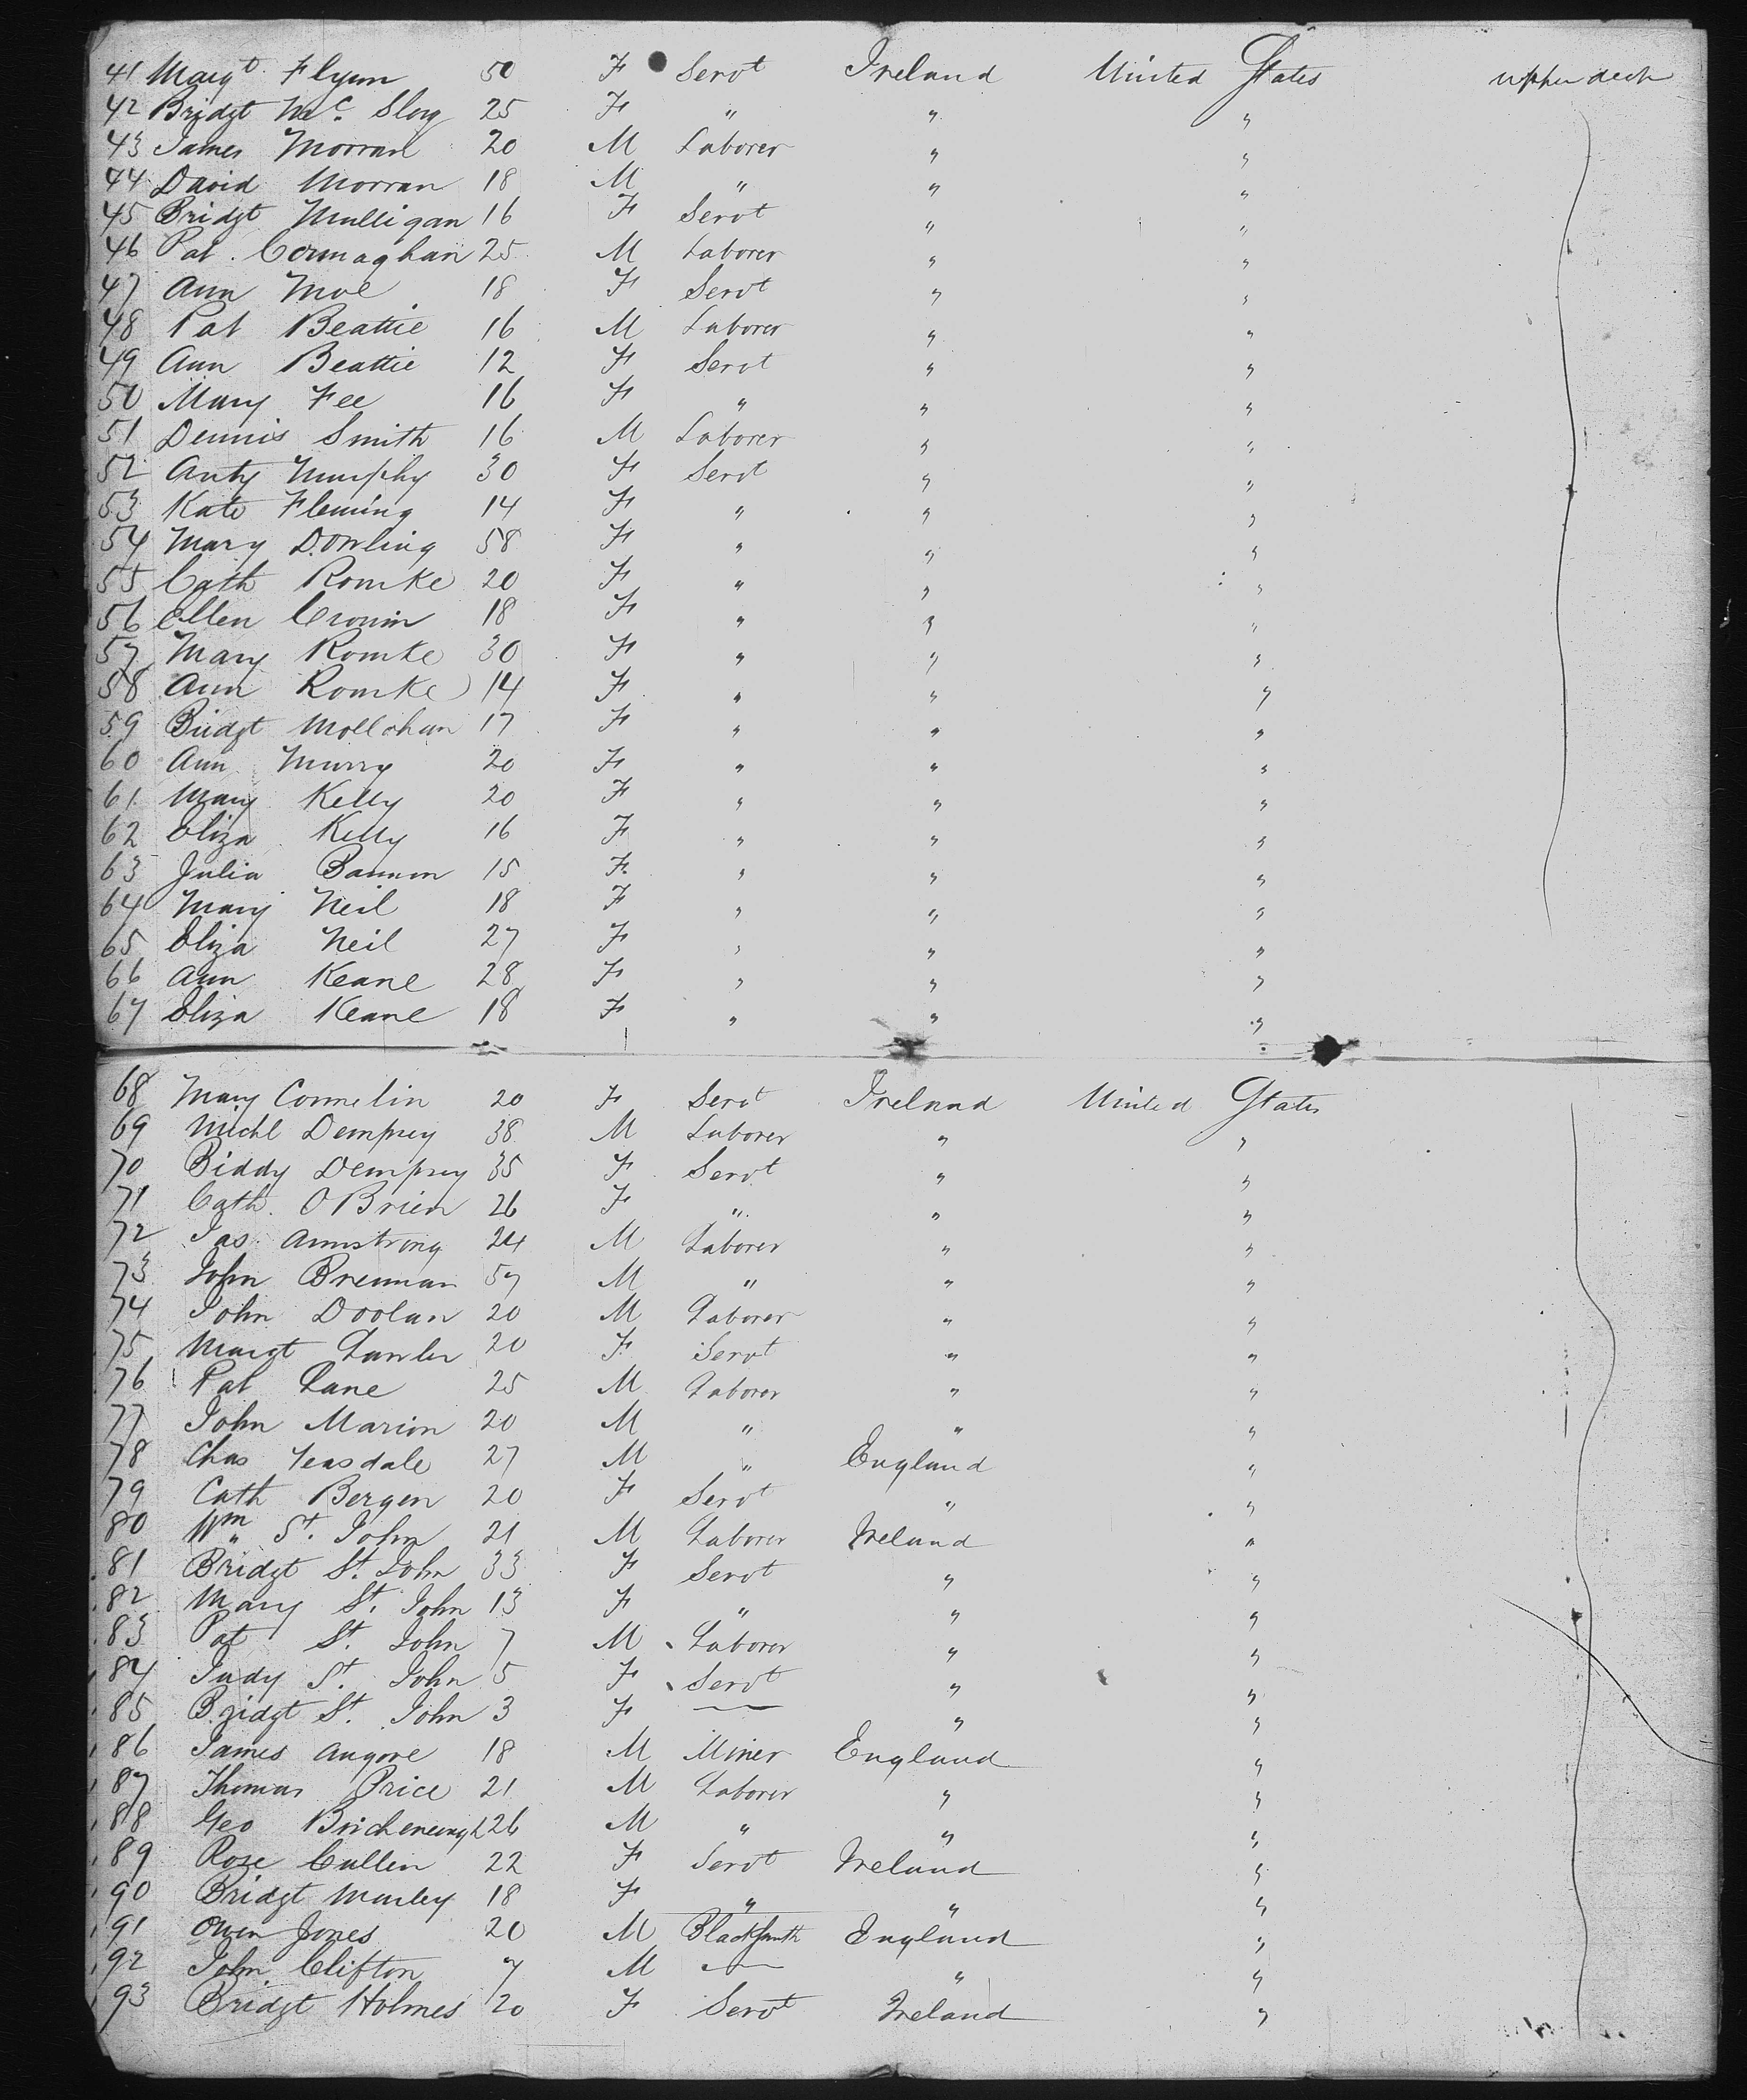 41 Margt Flynn 50 F Servt Ireland United States upper deck
42 Bridgt Mc. Sloy 25 F " " "
43 James Morran 20 M Laborer " "
44 David Morran 18 M " " "
45 Bridgt Mulligan 16 F Servt " "
46 Pat. Connaghan 25 M Laborer " "
47 Ann Moe 18 F Servt " "
48 Pat Beattie 16 M Laborer " "
49 Ann Beattie 12 F Servt " "
50 Mary Fee 16 F " " "
51 Dennis Smith 16 M Laborer " "
52 Anty Murphy 30 F Servt " "
53 Kate Fleming 14 F " " "
54 Mary Dowling 58 F " " "
55 Cath Rourke 20 F " " "
56 Ellen Cronin 18 F " " "
57 Mary Rourke 30 F " " "
58 Ann Rourke 14 F " " "
59 Bridgt Mollohan 17 F " " "
60 Ann Murry 20 F " " "
61 Mary Kelly 20 F " " "
62 Eliza Kelly 16 F " " "
63 Julia Bannon 15 F " " "
64 Mary Neil 18 F " " "
65 Eliza Neil 27 F " " "
66 Ann Keane 28 F " " "
67 Eliza Keane 18 F " " "
68 Mary Connelin 20 F Servt Ireland United States
69 Michl Dempsey 38 M Laborer " "
70 Biddy Dempsey 35 F Servt " "
71 Cath. OBrien 26 F " " "
72 Jas. Armstrong 24 M Laborer " "
73 John Brennan 57 M " " "
74 John Doolan 20 M Laborer " "
75 Margt Lawler 20 F Servt " "
76 Pat Lane 25 M Laborer " "
77 John Marion 20 M " " "
78 Chas Teasdale 27 M " England "
79 Cath Bergen 20 F Servt " "
80 Wm St. John 21 M Laborer Ireland "
81 Bridgt St. John 33 F Servt " "
82 Mary St. John 13 F " " "
83 Pat St. John 7 M Laborer " "
84 Judy St. John 5 F Servt " "
85 Bridgt St. John 3 F — " "
86 James Angove 18 M Miner England "
87 Thomas Price 21 M Laborer " "
88 Geo 26 M " " "
89 Rose Cullen 22 F Servt Ireland "
90 Bridgt Murley 18 F " " "
91 Owen Jones 20 M Blacksmith England "
92 John Clifton 7 M — " "
93 Bridgt Holmes 20 F Servt Ireland "